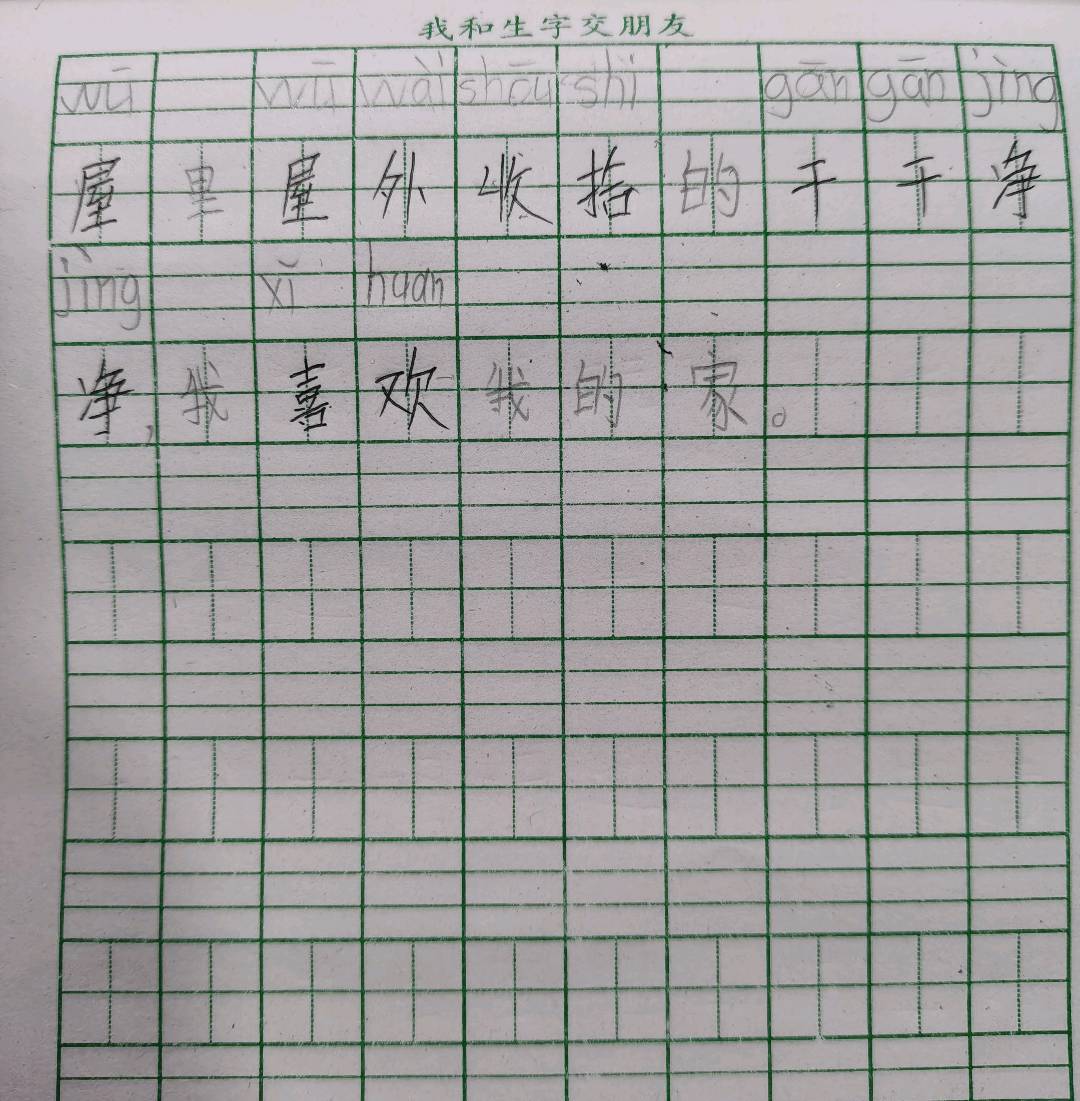 我和生字交朋友
wū wū wài shōu shi gān gān jìng
屋里屋外收拾的干干净
jìng xǐ huan
净，我喜欢我的家。